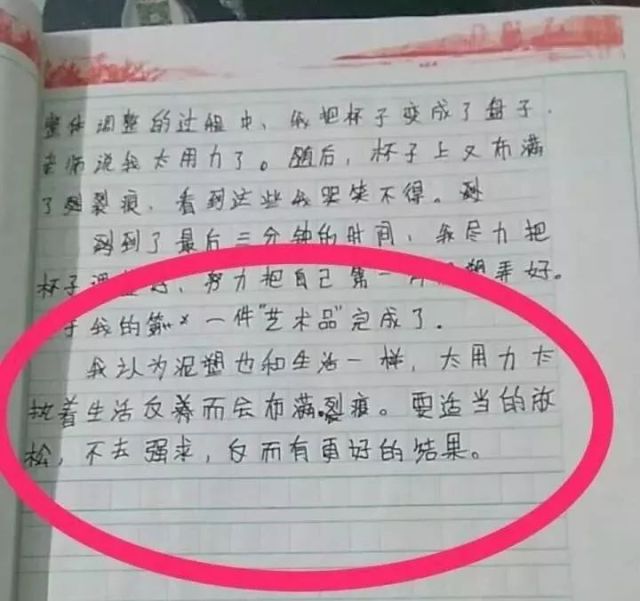 整体调整的过程中，我把杯子变成了盘子，
老师说我太用力了。随后，杯子上又布满
了裂痕，看到这些我哭笑不得。
到了最后三分钟的时间，我尽力把
杯子调整好，努力把自己第一弄好。
于我的第一件"艺术品"完成了。
我认为泥塑也和生活一样，太用力太
执着生活反而会布满裂痕。要适当的放
松，不去强求，反而有更好的结果。